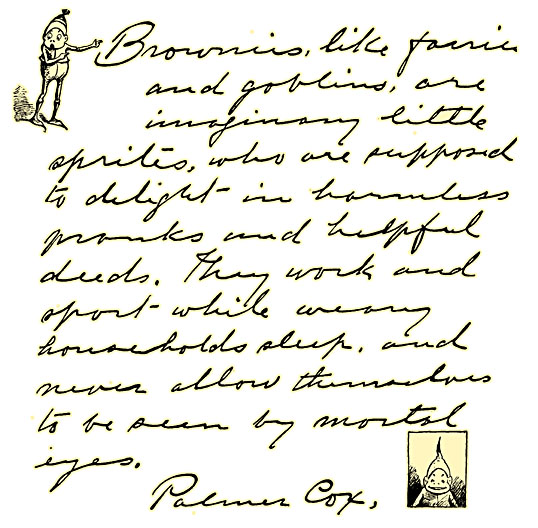 Brownies, like fairies
and goblins, are
imaginary little
sprites, who are supposed
to delight in harmless
pranks and helpful
deeds. They work and
sport while weary
households sleep, and
never allow themselves
to be seen by mortal
eyes.
Palmer Cox.